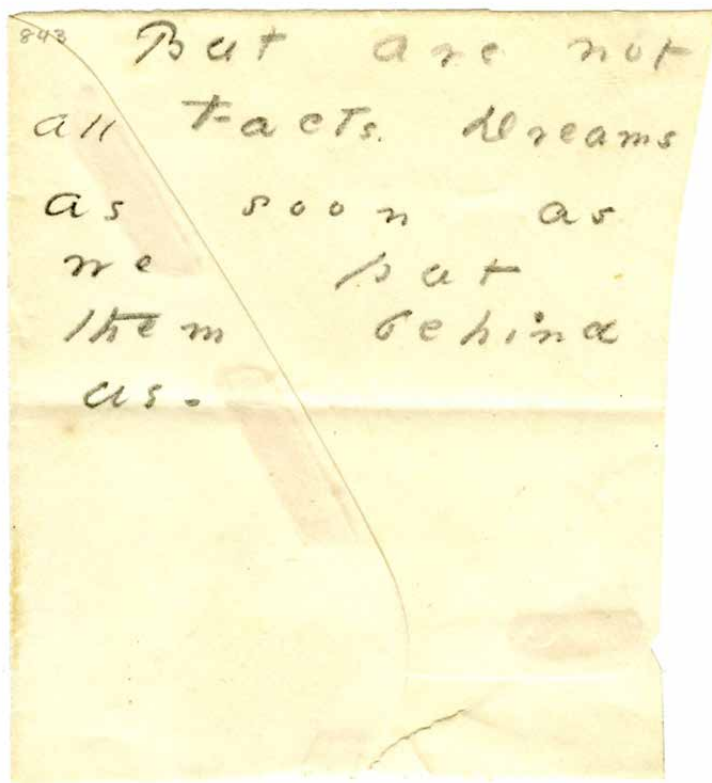 843
But are not
all Facts. Dreams
as soon as
we put
them behind
us.